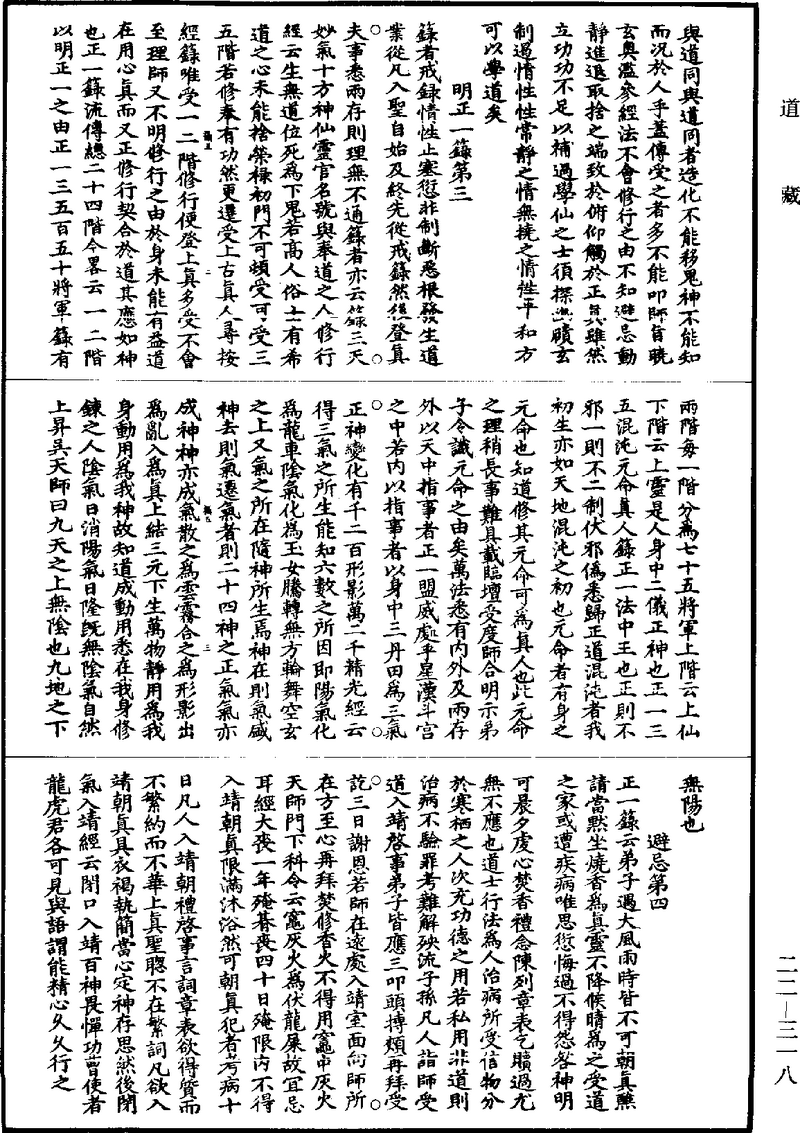 道藏
與道同與道同者造化不能移鬼神不能知
而況於人乎蓋傳受之者多不能叩師旨曉
玄奧濫參經法不會修行之由不知避忌動
靜進退取捨之端致於俯仰觸於正炁雖然
立功功不足以補過學仙之士須探幽賾玄
制過情性性常靜之情無撓之情性平和方
可以學道矣
明正一籙第三
籙者戒錄情性止塞愆非制斷惡根發生道
業從凡入聖自始及終先從戒籙然後登真
夫事悉兩存則理無不通籙者亦云籙三天
妙氣十方神仙靈官名號與奉道之人修行
經云生無道位死為下鬼若高人俗士有希
道之心未能捨榮祿初門不可頓受可受三
五階若修奉有功然更遷受上古真人尋按
經籙唯受一二階修行便登上真多受不會
至理師又不明修行之由於身未能有益道
在用心真而又正修行契合於道其應如神
也正一籙流傳總二十四階今畧云一二階
以明正一之由正一三五百五十將軍籙有
兩階每一階分為七十五將軍上階云上仙
下階云上靈是人身中二儀正神也正一三
五混沌元命真人籙正一法中王也正則不
邪一則不二制伏邪偽悉歸正道混沌者我
初生亦如天地混沌之初也元命者有身之
元命也知道修其元命可為真人也此元命
之理稍長事難具載臨壇受度師合明示弟
子令識元命之由矣萬法悉有內外及兩存
外以天中指事者正一盟威處乎星漢斗宮
之中若內以指事者以身中三丹田為三氣
正神變化有千二百形影萬二千精光經云
得三氣之所生能知六數之所因即陽氣化
為龍車陰氣化為玉女騰轉無方輪舞空玄
之上又氣之所在隨神所生焉神在則氣盛
神去則氣遷氣者則二十四神之正氣氣亦
成神神亦成氣散之為雲霧合之為形影出
為亂入為真上結三元下生萬物靜用為我
身動用為我神故知道成動用悉在我身修
鍊之人陰氣日消陽氣日隆既無陰氣自然
上昇吳天師曰九天之上無陰也九地之下
無陽也
避忌第四
正一籙云弟子遇大風雨時皆不可朝真燕
請當默坐燒香為真靈不降候晴為之受道
之家或遭疾病唯思愆悔過不得怨咎神明
可晨夕虔心焚香禮念陳列章表乞贖過尤
無不應也道士行法為人治病所受信物分
於寒栖之人次充功德之用若私用非道則
治病不驗罪考難解殃流子孫凡人詣師受
道入靖啓事弟子皆應三叩頭搏頰再拜受
訖三日謝恩若師在遠處入靖室面向師所
在方至心再拜焚修香火不得用竈中灰火
天師門下科令云竈灰火為伏龍屎故宜忌
耳經大喪一年殗朞喪四十日殗限內不得
入靖朝真限滿沐浴然可朝真犯者考病十
日凡人入靖朝禮啓事言詞章表欲得質而
不繁約而不華上真聖聰不在繁詞凡欲入
靖朝真具衣褐執簡當心定神存思然後閉
氣入靖經云閉口入靖百神畏憚功曹使者
龍虎君各可見與語謂能精心久久行之
二二—三一八